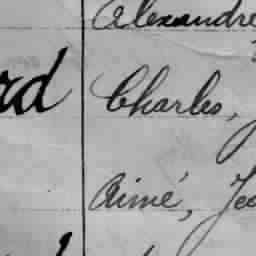 Alexandre
rd Charles,
Aimé, Je